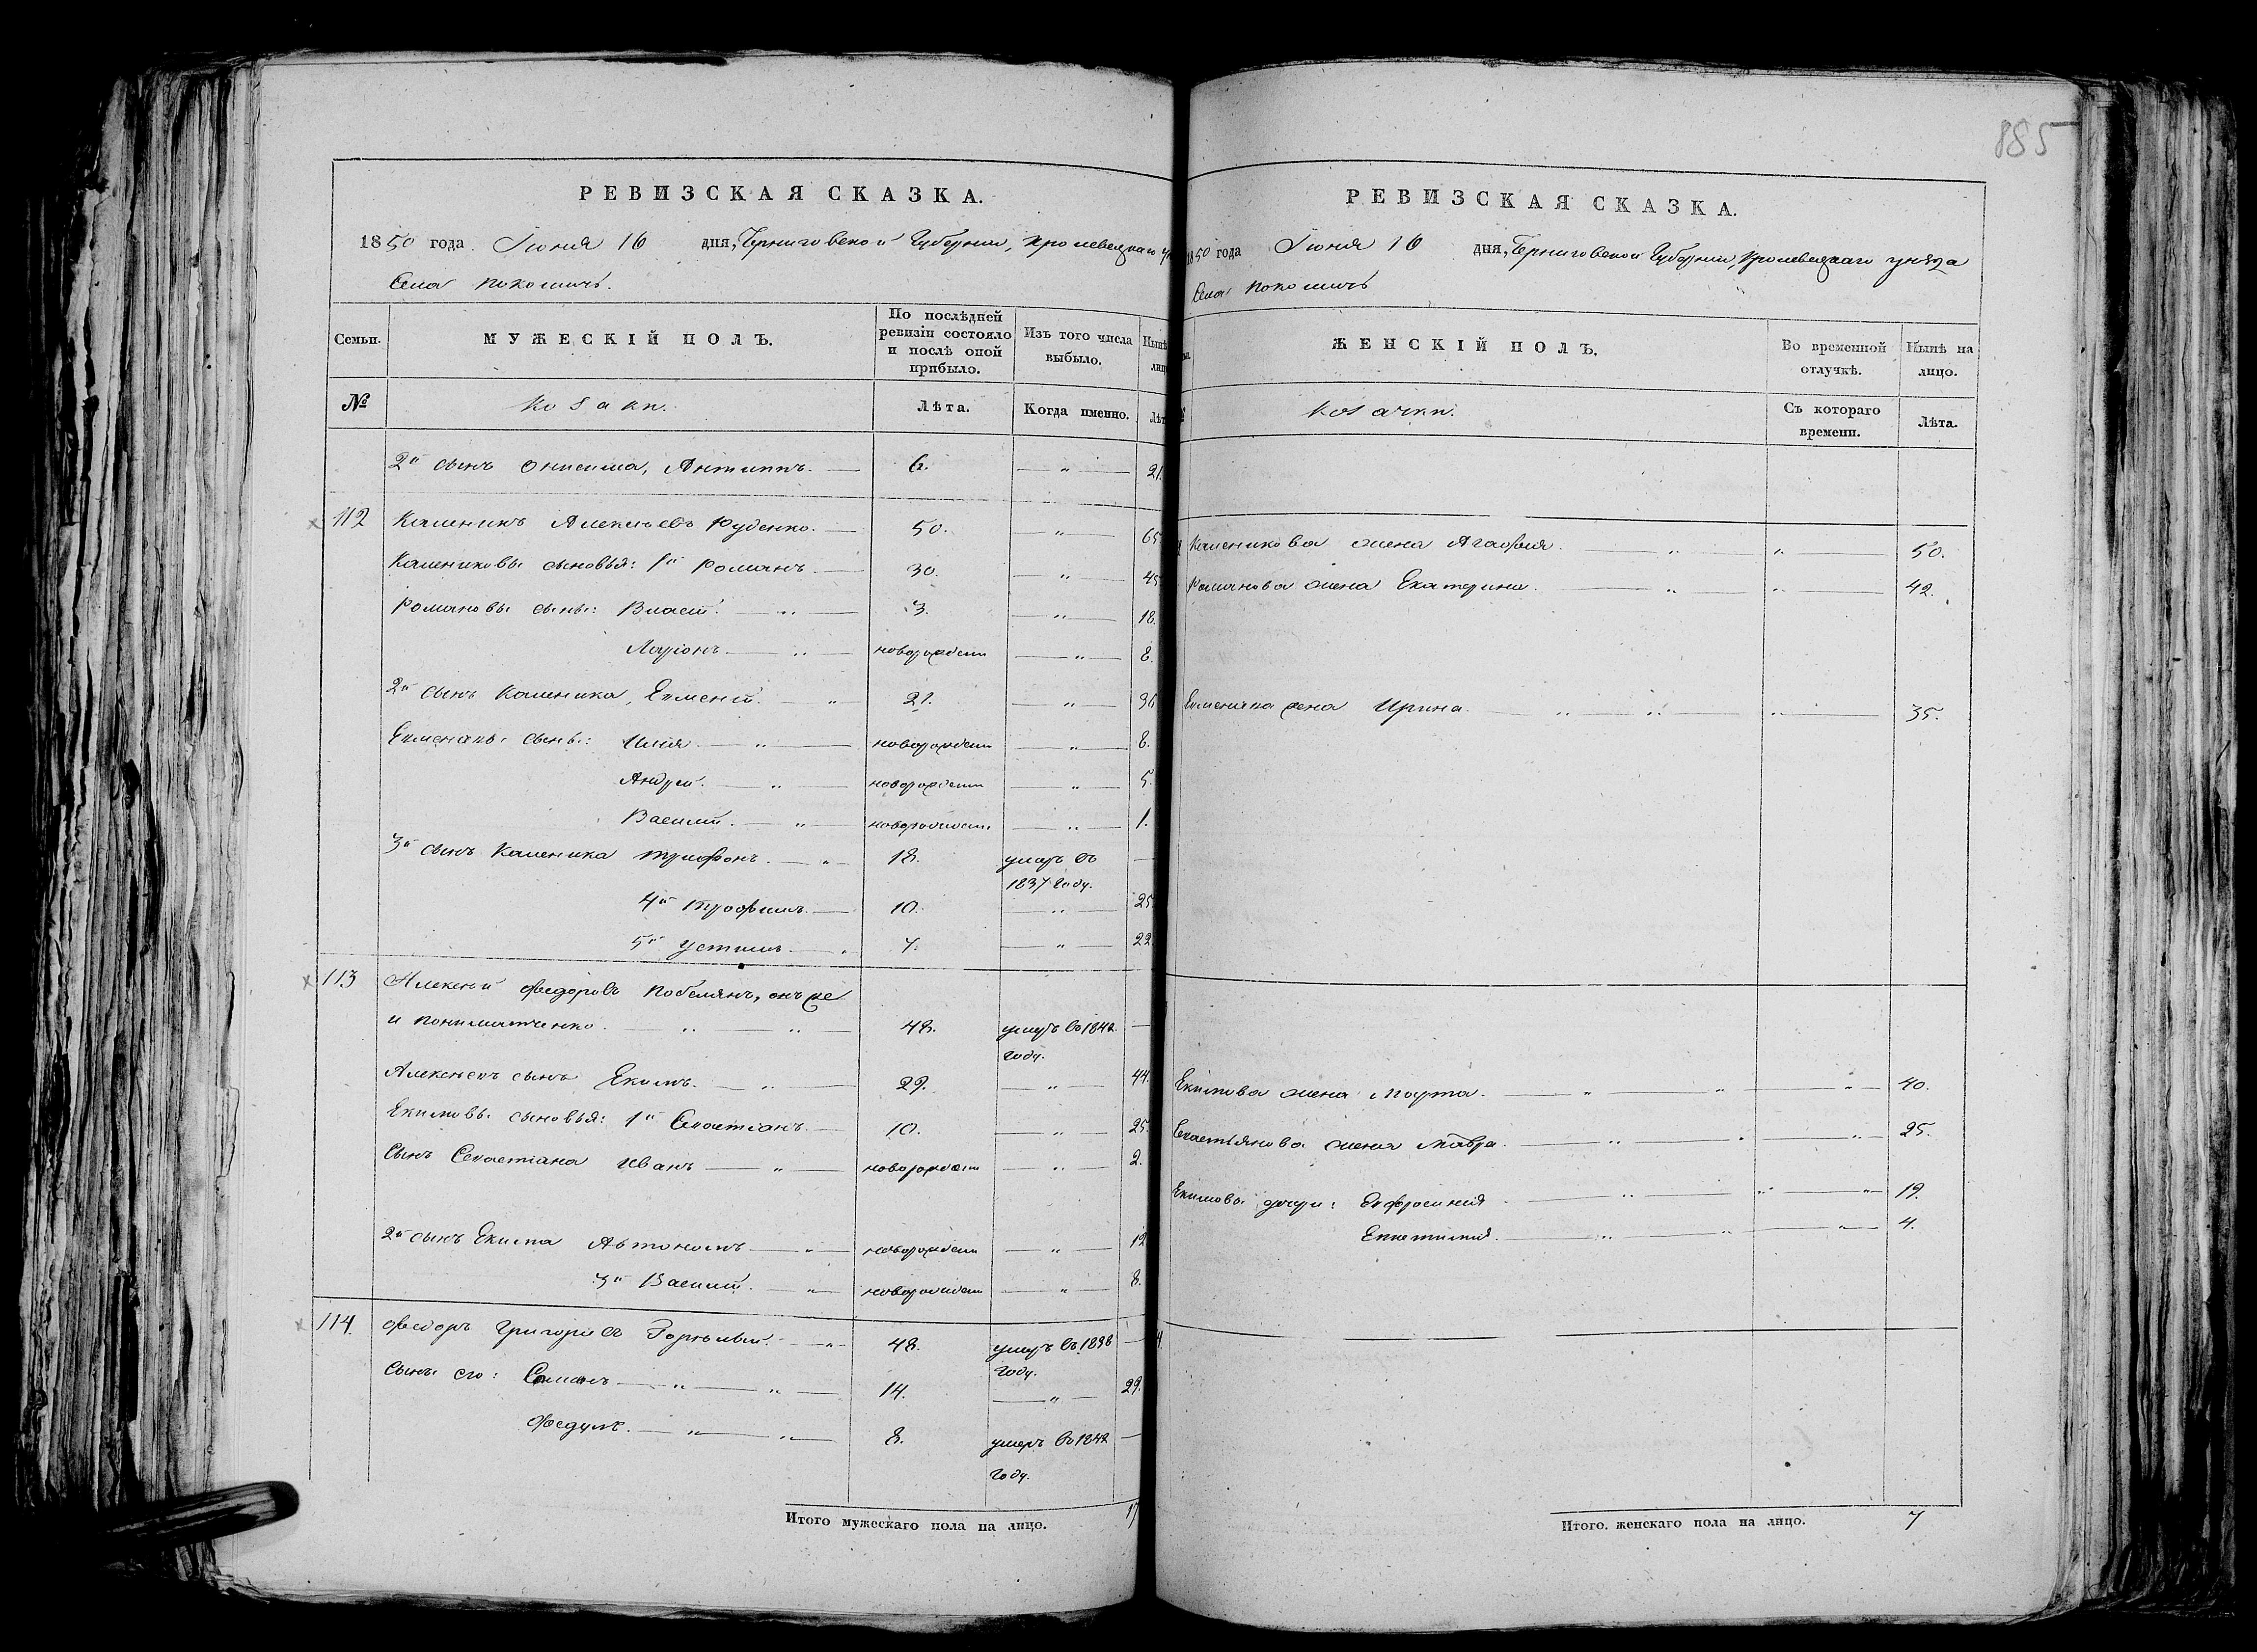 885
РЕВИЗСКАЯ СКАЗКА.
1850 года Іюня 16 дня, Черниговской Губерніи, Кролевецкаго
Села Покошичъ.
Семьи. МУЖЕСКІЙ ПОЛЪ. По послѣдней ревизіи состояло и послѣ оной прибыло. Изъ того числа выбыло. Нынѣ
№ Козаки. Лѣта. Когда именно.
2й сынъ Онисима, Антипъ. — 6. — " — 21.
112 Каленикъ Алексѣевъ Руденко. — 50. — " — 65
Калениковы сыновья: 1й Романъ — 30. — " — 45
Романовы сыны: Власій. — " — 3. — " — 18.
Ларіонъ — " — новорожден — " — 8.
2й сынъ Каленика, Евменій. — " 21. — " — 36
сыны: Илія — " — новорожден — " — 8.
Андрей. — " — новорожден — " — 5.
Василій. — " — новорожден. — " — 1.
3й сынъ Каленика Трифонъ. — " — 18. умеръ въ —
1837 году.
4й Трофимъ. — 10. — " — 25
5й Устимъ — " 7. — " — 22
113 Алексѣй Федоровъ онъ же
и — " — " — 48. умеръ въ 1842 —
году.
Алексѣевъ сынъ Екимъ. — " — 29. — " — 44.
Екимовы сыновья: 1й Севастіанъ. — 10. — " — 25.
Сынъ Севастіана Иванъ — " — новорожден — " — 2.
2й сынъ Екима Автономъ — " — новорожден — " — 12
3й Василій. — " — новорожден — " — 8.
114. Федоръ Григорьевъ — " — 48. умеръ въ 1838 —
году.
Сыны его: — " — " — 14. — " — 29.
Федулъ. — " — " — 8. умеръ въ 1842 —
году.
Итого мужескаго пола на лицо. 17
РЕВИЗСКАЯ СКАЗКА.
1850 года Іюня 16 дня, Черниговской Губерніи, Кролевецкаго уѣзда
Села Покошичъ
ЖЕНСКІЙ ПОЛЪ. Во временной отлучкѣ. Нынѣ на лицо.
Козачки. Съ котораго времени. Лѣта.
Каленикова жена Агафія. — " — " — 50.
Романова жена Екатерина. — " — " — 42.
жена Ирина — " — " — " — 35.
Екимова жена Марта. — " — " — " — 40.
Севастьянова жена Мавра. — " — " — " — 25.
Екимовы дочери: Ефросинія — " — " — " — 19.
— " — " — " — 4.
Итого. женскаго пола на лицо. 7